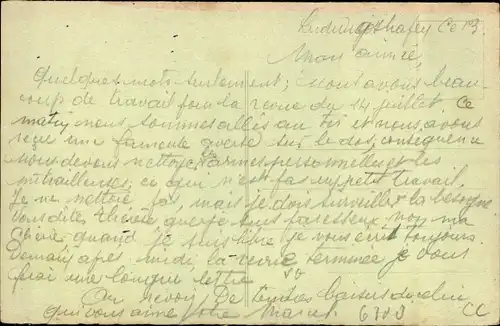 Ludwigshafen Ce 13
Mon aimée,
Quelques mots seulement; Nous avons beau-
coup de travail pour la revue du 14 juillet. Ce
matin nous sommes allés au tir et nous avons
reçu une fameuse averse sur le dos, conséquence
Nous devons nettoyer armes personnelles et les
mitrailleuses, ce qui n'est pas un petit travail.
Je ne nettoie pas, mais je dois surveiller la besogne
Vous dites, chérie que je suis paresseux non ma
Chérie quand je suis libre je vous écrit toujours.
Demain après midi, la revue terminée je vous
ferai une longue lettre
Au revoir De tendres baisers de celui
qui vous aime votre Marcel 6783 CC